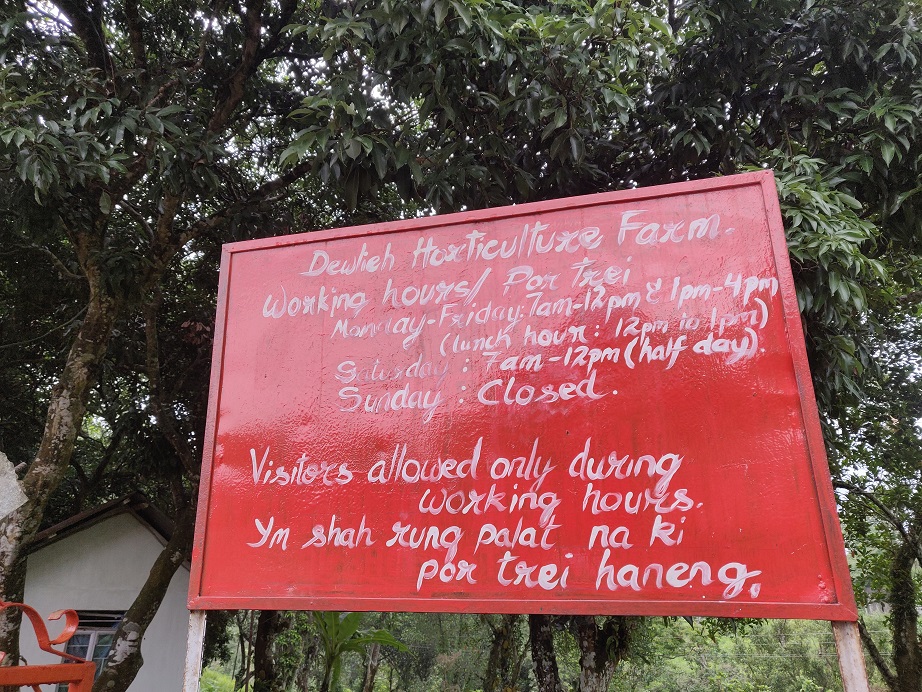 Dewlieh Horticulture Farm.
Working hours/ Por trei
Monday-Friday: 7am-12pm & 1pm-4pm
(lunch hour: 12pm to 1pm)
Saturday : 7am-12pm (half day).
Sunday : Closed.
Visitors allowed only during
working hours.
Ym shah rung palat na ki
por trei haneng.